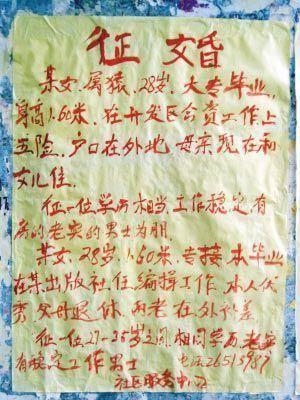 征婚
某女.属猿.28岁.大专毕业.
身高1.60米.在开发区合资工作上
五险.户口在外地.母亲现在和
女儿住.
征一位学历相当.工作稳定.有
房的老实的男士为朋.
某女.28岁.1.60米.专接本毕业
在某出版社任编辑工作.本人优
秀.父母退休.两老在外
征一位27-35岁之间相同学历老实
有稳定工作男士 电话26515987
社区服务中心